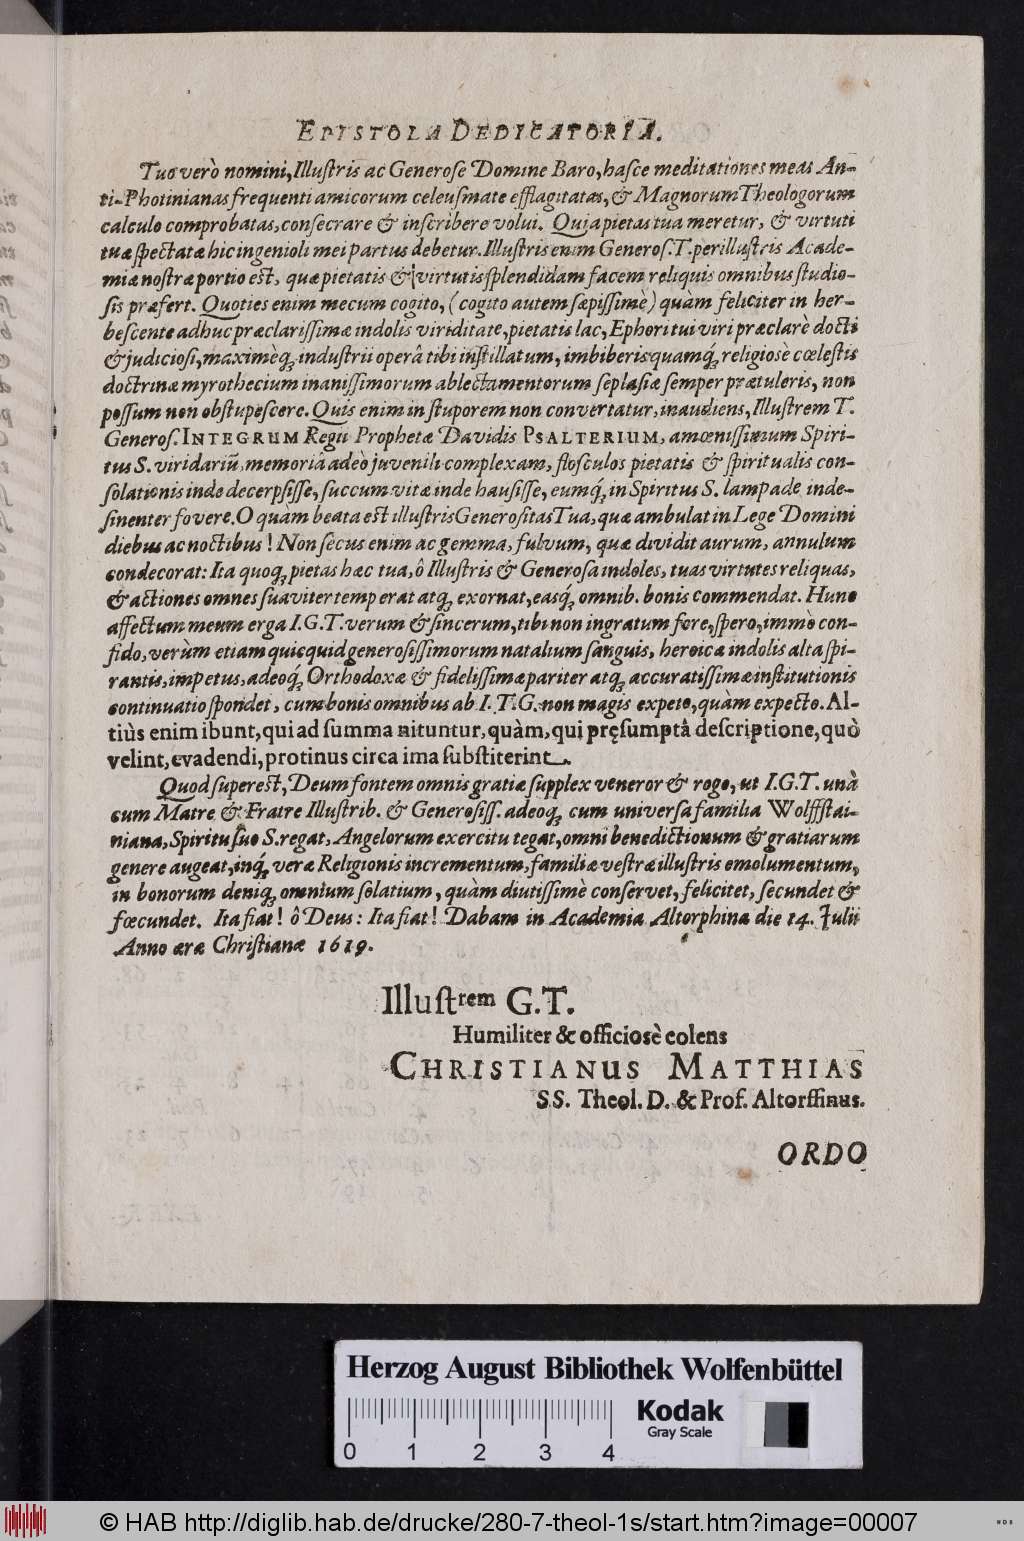 EPISTOLA DEDICATORIA.
Tuo verò nomini, Illustris ac Generose Domine Baro, hasce meditationes meas An-
ti-Photinianas frequenti amicorum celeusmate efflagitatas, & Magnorum Theologorum
calculo comprobatas, consecrare & inscribere volui. Quia pietas tua meretur, & virtuti
tuæ spectatæ hic ingenioli mei partus debetur. Illustris enim Generos. T. perillustris Acade-
miæ nostræ portio est, quæ pietatis & virtutis splendidam facem reliquis omnibus studio-
sis præfert. Quoties enim mecum cogito, (cogito autem sæpissimè) quàm feliciter in her-
bescente adhuc præclarissimæ indolis viriditate, pietatis lac, Ephori tui viri præclarè docti
& judiciosi, maximèq́; industrii operâ tibi instillatum, imbiberis quamq́; religiosè cœlestis
doctrinæ myrothecium inanissimorum ablectamentorum seplasiæ semper prætuleris, non
possum non obstupescere. Quis enim in stuporem non convertatur, inaudiens, Illustrem T.
Generos. INTEGRUM Regii Prophetæ Davidis PSALTERIUM, amœnissimum Spiri-
tus S. viridariũ, memoriâ adeò juvenili complexam, flosculos pietatis & spiritualis con-
solationis inde decerpsisse, succum vitæ inde hausisse, eumq́; in Spiritus S. lampade inde-
sinenter fovere. O quàm beata est illustris Generositas Tua, quæ ambulat in Lege Domini
diebus ac noctibus! Non secus enim ac gemma, fulvum, quæ dividit aurum, annulum
condecorat: Ita quoq; pietas hæc tua, ô Illustris & Generosa indoles, tuas virtutes reliquas,
& actiones omnes suaviter temperat atq; exornat, easq́; omnib. bonis commendat. Hunc
affectum meum erga I.G.T. verum & sincerum, tibi non ingratum fore, spero, immò con-
fido, verùm etiam quicquid generosissimorum natalium sanguis, heroicæ indolis alta spi-
rantis, impetus, adeoq́; Orthodoxæ & fidelissimæ pariter atq; accuratissimæ institutionis
continuatio spondet, cum bonis omnibus ab I.T.G. non magis expeto, quàm expecto. Al-
tiùs enim ibunt, qui ad summa nituntur, quàm, qui pręsumptâ descriptione, quò
velint, evadendi, protinus circa ima substiterint.
Quod superest, Deum fontem omnis gratiæ supplex veneror & rogo, ut I.G.T. unà
cum Matre & Fratre Illustrib. & Generosiss. adeoq; cum universa familia Wolffstai-
niana, Spiritu suo S. regat, Angelorum exercitu tegat, omni benedictionum & gratiarum
genere augeat, inq́; veræ Religionis incrementum, familiæ vestræ illustris emolumentum,
in bonorum deniq; omnium solatium, quàm diutissimè conservet, felicitet, secundet &
fœcundet. Ita fiat! ô Deus: Ita fiat! Dabam in Academia Altorphina die 14. Julii
Anno æræ Christianæ 1619.
Illustrem G.T.
Humiliter & officiosè colens
CHRISTIANUS MATTHIAS
SS. Theol. D. & Prof. Altorffinus.
ORDO
Herzog August Bibliothek Wolfenbüttel
0 1 2 3 4
Kodak
Gray Scale
© HAB http://diglib.hab.de/drucke/280-7-theol-1s/start.htm?image=00007